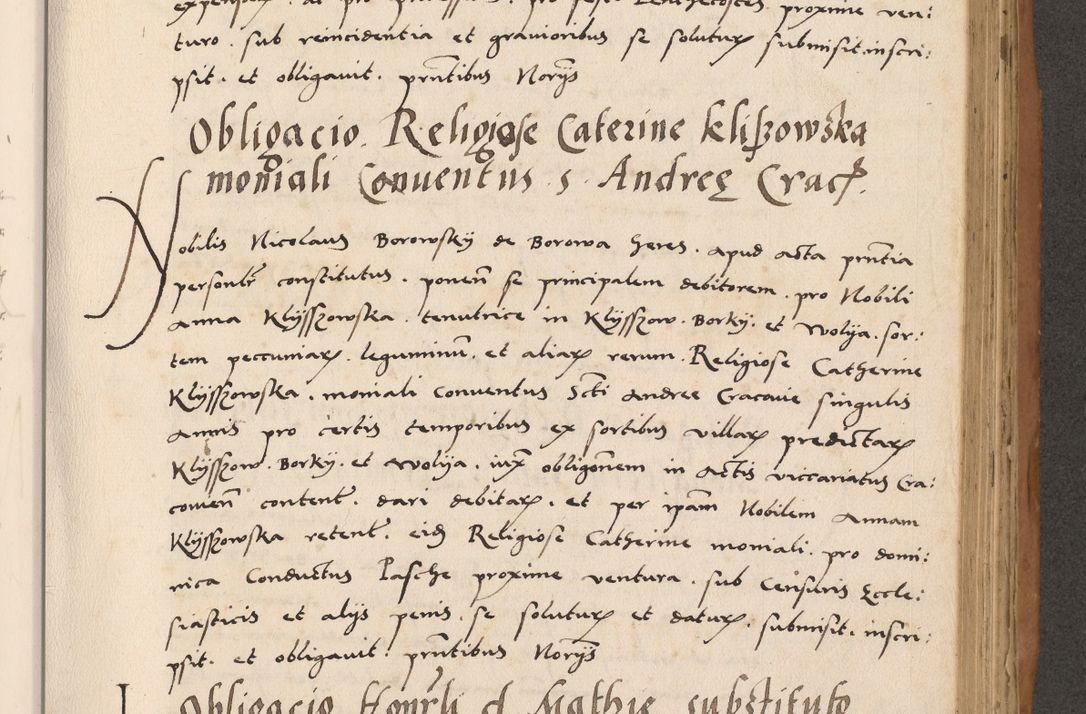 pro festo Penthecostes proxime ven:
turo . sub reincidentia et gravioribus se soluturz submisit inscri:
psit . et obligavit . prntibus Norijs
Obligacio Religiose Caterine Kliszowska
moniali Conventus s. Andreę Crac.
Nobilis Nicolaus Borowskij de Borowa heres . apud acta prntia
personlr constitutus . ponen se principalem debitorem . pro Nobili
Anna Klijsszowska . tenutrice in Klijsszow . Borkij . et Wolija . sor:
tem peccuniarz . leguminu . et aliarz rerum . Religiose Catherine
Klijsszowska . moniali Conventus Scti Andree Cracovie singulis
Annis pro certis temporibus ex sortibus villarz predictarz
Klijsszow . Borkij . et Wolija . iux obligonem in Actis viccariatus Cra:
covien content . dari debitarz . et per ipam Nobilem Annam
Klijsszowska retent . eid Religiose Catherine moniali . pro domi:
nica Conductus Pasche proxime ventura . sub Censuris Eccle:
siasticis et alijs penis . se soluturz et daturz . submisit . inscri:
psit . et obligavit . prntibus Norijs
Obligacio Honrli d. Mathie substituto